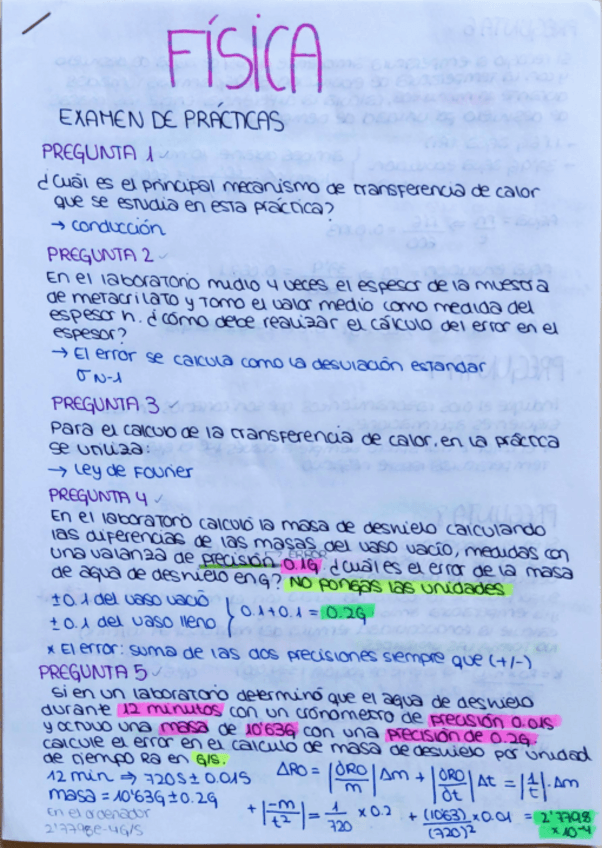 FÍSICA
EXAMEN DE PRÁCTICAS
PREGUNTA 1
¿Cuál es el principal mecanismo de transferencia de calor
que se estudia en esta práctica?
→ conducción
PREGUNTA 2
En el laboratorio mido 4 veces el espesor de la muestra
de metacrilato y tomo el valor medio como medida del
espesor h. ¿cómo debe realizar el cálculo del error en el
espesor?
→ El error se calcula como la desviación estandar
σ N-1
PREGUNTA 3
Para el calculo de la transferencia de calor, en la práctica
se utiliza:
→ Ley de Fourier
PREGUNTA 4
En el laboratorio calculó la masa de deshielo calculando
las diferencias de las masas del vaso vacío, medidas con
→ ERROR
una valanza de precisión 0.1g. ¿cuál es el error de la masa
de agua de deshielo en g? No pongas las unidades
±0.1 del vaso vacío
±0.1 del vaso lleno } 0.1+0.1 = 0.2g
* El error: suma de las dos precisiones siempre que (+/-)
PREGUNTA 5
Si en un laboratorio determinó que el agua de deshielo
durante 12 minutos con un cronómetro de precisión 0.01s
y obtuvo una masa de 10'63g con una precisión de 0.2g.
calcule el error en el cálculo de masa de deshielo por unidad
de tiempo Ra en g/s.
12 min ⇒ 720s ± 0.01s ΔRo = |∂Ro/m| Δm + |∂Ro/∂t| Δt = |1/t| · Δm
masa = 10'63g ± 0.2g + |-m/t²| = 1/720 × 0.2 + (10'63)/(720)² × 0.01 = 2'7798 × 10⁻⁴
En el ordenador
2'7798e-4g/s